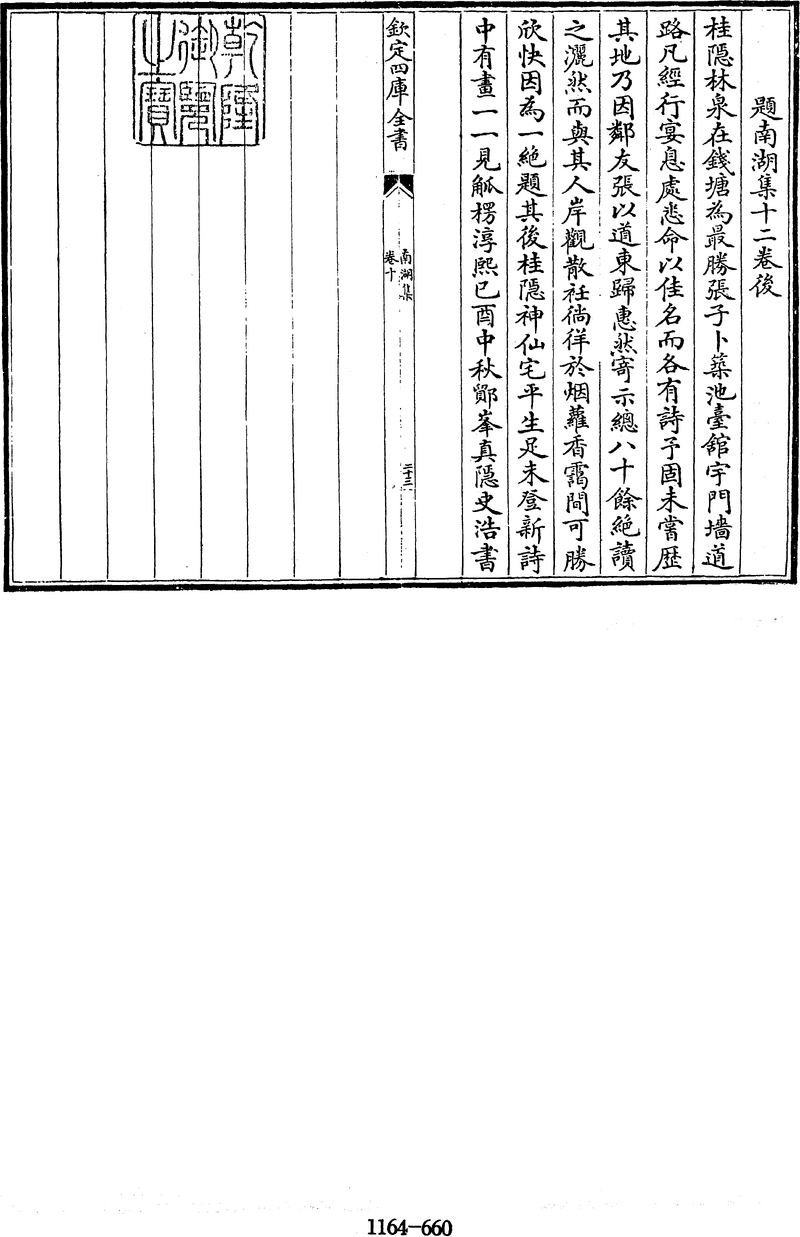 題南湖集十二卷後
桂隱林泉在錢塘為最勝張子卜築池臺館宇門墻道
路凡經行宴息處悉命以佳名而各有詩予固未嘗歴
其地乃因鄰友張以道東歸惠然寄示總八十餘絶讀
之灑然而與其人岸觀散袵徜徉於烟蘿香靄間可勝
欣快因為一絶題其後桂隱神仙宅平生足未登新詩
中有畫一一見觚楞淳熙已酉中秋鄮峯真隱史浩書
欽定四庫全書
南湖集
卷十
二十三
乾隆
御覽
之寶
1164-660